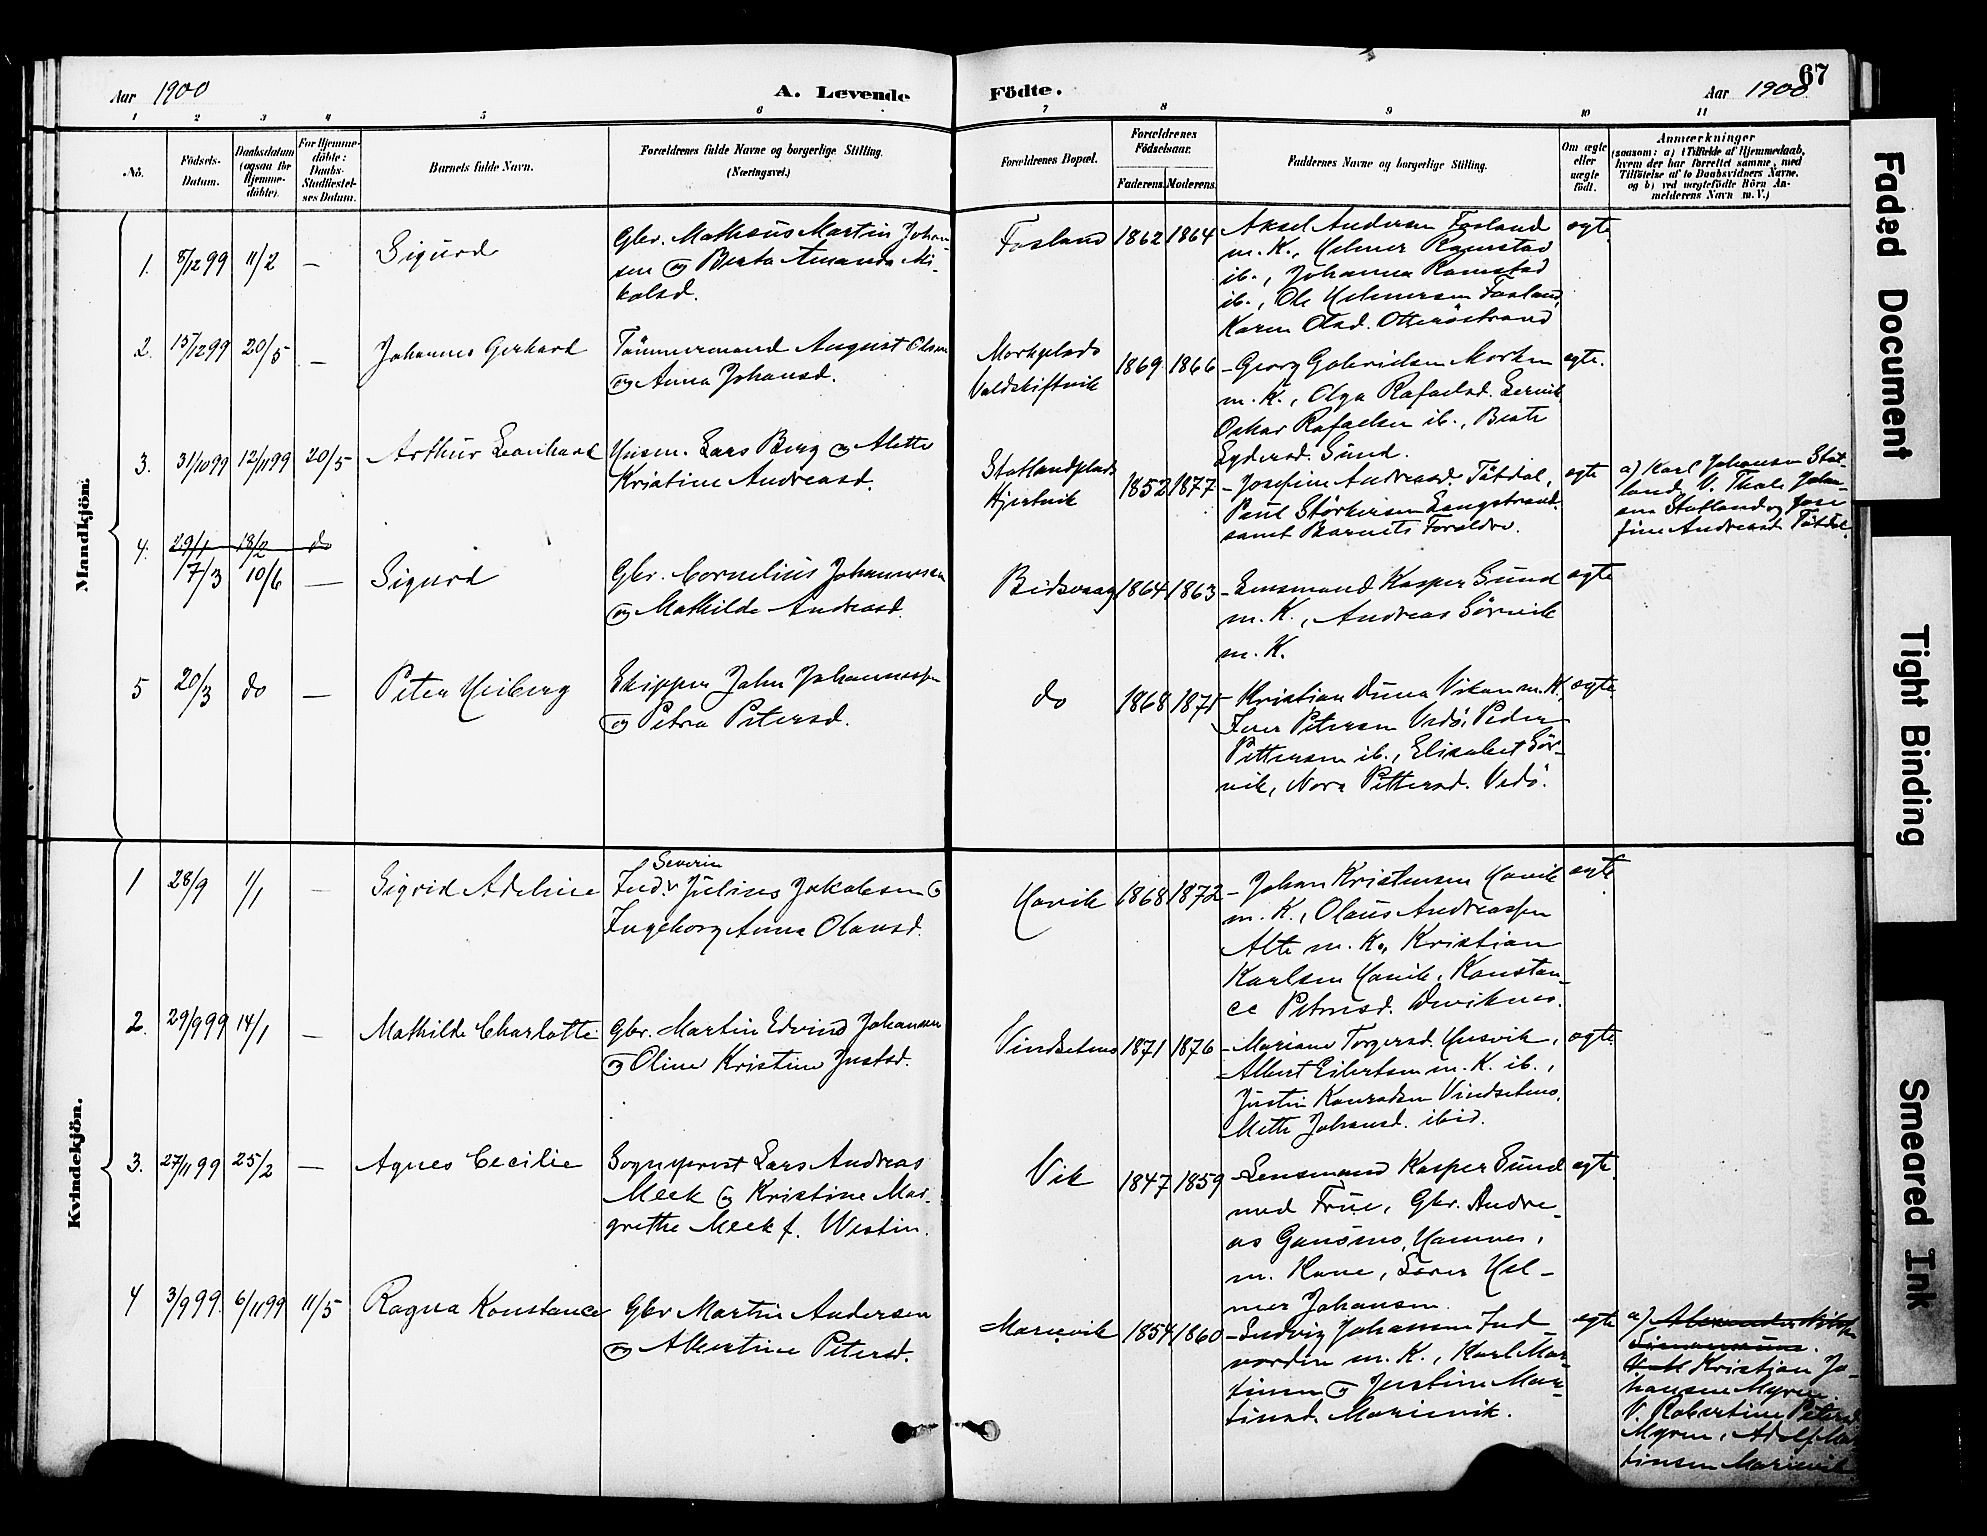 67
Aar 1900
A. Levende
Födte.
Aar 1900
1 2 3 4 5 6 7 8 9 10 11
No.
Födsels-
Datum.
Daabsdatum
(ogsaa for
Hjemme-
döbte).
For Hjemme-
döbte:
Daabs-
Stadfæstel-
ses Datum.
Barnets fulde Navn.
Forældrenes fulde Navne og borgerlige Stilling.
(Næringsvei.)
Forældrenes Bopæl.
Forældrenes
Födselsaar.
Faderens. Moderens.
Faddernes Navne og borgerlige Stilling.
Om ægte
eller
uægte
födt.
Anmærkninger
(saasom: a) i Tilfælde af Hjemmedaab,
hvem der har forrettet samme, med
Tilföielse af to Daabsvidners Navne,
og b) ved uægtefödte Börn An-
melderens Navn m. V.)
Mandkjön.
1. 8/12 99 11/2 — Sigurd
Gbr. Matheus Martin Johan-
sen og Berta Amanda Ni-
kolsd.
Fosland 1862 1864
Aksel Andersen Fosland
m. K., Helmer Ramstad
ib., Johanna Ramstad
ib., Ole Helmersen Fosland,
Karen Olsd. Otteröstrand
egte
2. 15/12 99 20/5 — Johannes Gerhard
Tömmermand August Olsen
og Anna Johansd.
1869 1866
Georg Gabrielsen
m. K., Olga Rafaelsd.
Oskar Rafaelsen ib., Beate
Sund.
egte.
3. 31/10 99 12/11 99 20/5 Arthur Leonhard
Husm. Lars Berg og Alette
Kristine Andreasd.
Statlandplads
Hjertvik 1852 1877
Josefine Andreasd. Tötdal,
Paul Störkersen Langstrand
samt Barnets Forældre.
egte
a) Karl Johansen Stat-
land, V. Thale Johan-
sen Statland og Jose-
fine Andreasd. Tötdal.
4. 29/1 18/2 do
17/3 10/6 — Sigurd
Gbr. Cornelius Johannesen
og Mathilde Andreasd.
Bidsvaag 1864 1863
Lensmand Kasper Sund
m. K., Andreas Sörvik
m. K.
egte
5 20/3 do — Peter Heiberg
Skipper John Johannessen
og Petra Petersd.
do 1868 1875
Kristian Duna Vikan m. K.
Iver Petersen Vedö, Peder
Pettersen ib., Elisabet Sör-
vik, Nora Pettersd. Vedö.
egte
Kvindekjön.
1 28/9 1/1 — Sigrid Adeline
Severin
Ind. Julius Jakobsen og
Ingeborg Anna Olausd.
Havik 1868 1872
Johan Kristensen Havik
m. K., Olaus Andreassen
Alte m. K., Kristian
Karlsen Havik, Konstan-
ce Petersd.
egte
2. 29/9 99 14/1 — Mathilde Charlotte
Gbr. Martin Edvind Johansen
og Oline Kristine Justsd.
Vindsetmo 1871 1876
Mariane Torgersd. Husvik,
Albert Eilertsen m. K. ib.,
Justin Konradsen Vindsetmo,
Mette Johansd. ibid.
egte
3. 27/11 99 25/2 — Agnes Cecilie
Sogneprest Lars Andreas
Meek og Kristine Mar-
grethe Meek f. Westin.
Vik 1847 1859
Lensmand Kasper Sund
med Frue, Gbr. Andre-
as Gansmo, Hamnes,
m. Kone, Hel-
mer Johansen.
egte
4 3/9 99. 6/11 99 11/5 Ragna Konstance
Gbr Martin Andersen
og Albertine Petersd.
Marievik 1854 1860
Ludvig Johansen Ind-
vorden m. K., Karl Mar-
tinsen og Justine Mar-
tinsd. Marievik.
egte
a) Alexander Nilsen
Kristian Jo-
hansen Myren.
V. Robertine Petersd
Myren, Adolf Mar-
tinsen Marievik
Faded Document
Tight Binding
Smeared Ink